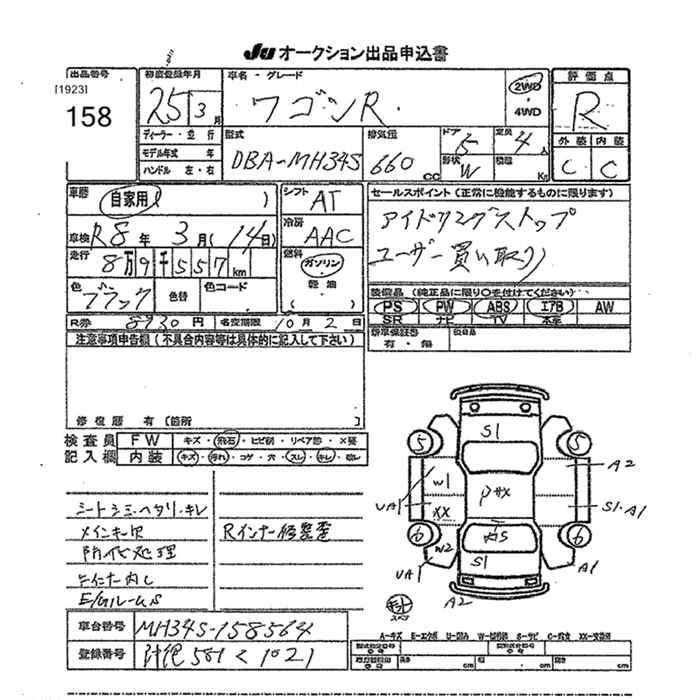 JU オークション出品申込書
出品番号 初度登録年月 車名・グレード 評価点
[1923]
158
25 3月 ワゴンR. 2WD・4WD R
ディーラー・並行 型式 排気量 ドア 定員 外装 内装
モデル年式 年 DBA-MH34S 660cc 5 4人 C C
ハンドル 左・右 形状 W 積載 Kg
車歴 自家用 シフト AT セールスポイント(正常に機能するものに限ります)
車検 R8年 3月(14日) 冷房 AAC アイドリングストップ
走行 8万9千557km 燃料 ガソリン・軽油 ユーザー買い取り
色 ブラック 色替 色コード ( )
装備品(純正品に限り○を付けてください)
PS PW ABS エアB AW
SR ナビ TV 本革
R券 8930円 名変期限 10月2日 新車保証書 有・無 欠品
注意事項申告欄(不具合内容等は具体的に記入して下さい)
修復歴 有[箇所 ]
検査員 FW キズ・飛石・ヒビ割・リペア跡・×要
記入欄 内装 キズ・汚れ・コゲ・穴・スレ・キレ・
シートシミ・ヘタリ・キレ
メインキーR
防化処理
E/Gルーム S
Rインナー修
5 S1 5
W1 A2
UA1 XX S1・A1
6 6
W2 S1
UA1 A1
A2
車台番号 MH34S-158564
登録番号 沖縄 581 く 1021
A-キズ E-エクボ U-凹み W-補修跡 S-サビ C-腐食 XX-交換済
長さ cm 幅 cm 高さ cm